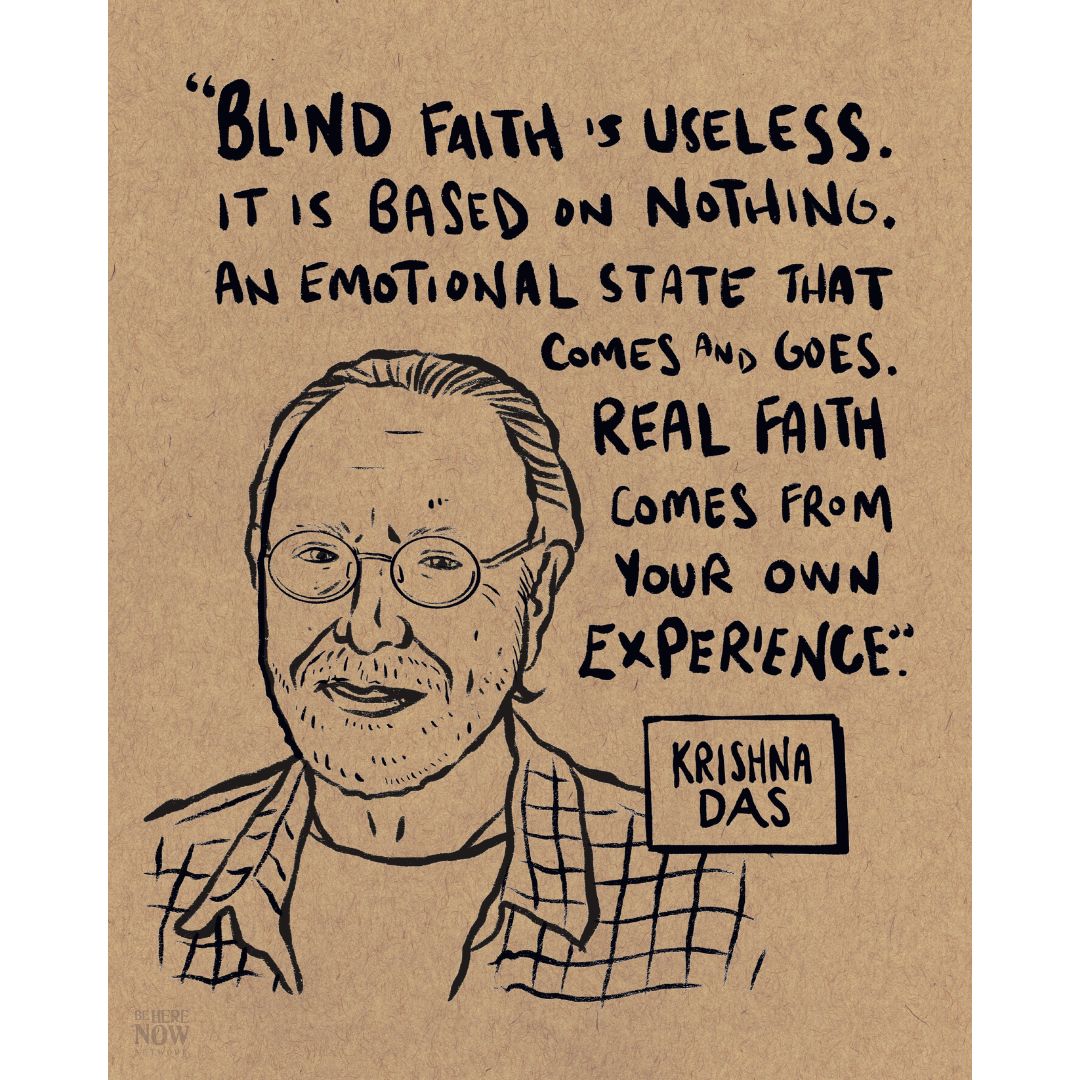 “BLIND FAITH IS USELESS.
IT IS BASED ON NOTHING.
AN EMOTIONAL STATE THAT
COMES AND GOES.
REAL FAITH
COMES FROM
YOUR OWN
EXPERIENCE”.
KRISHNA
DAS
BE HERE
NOW
NETWORK